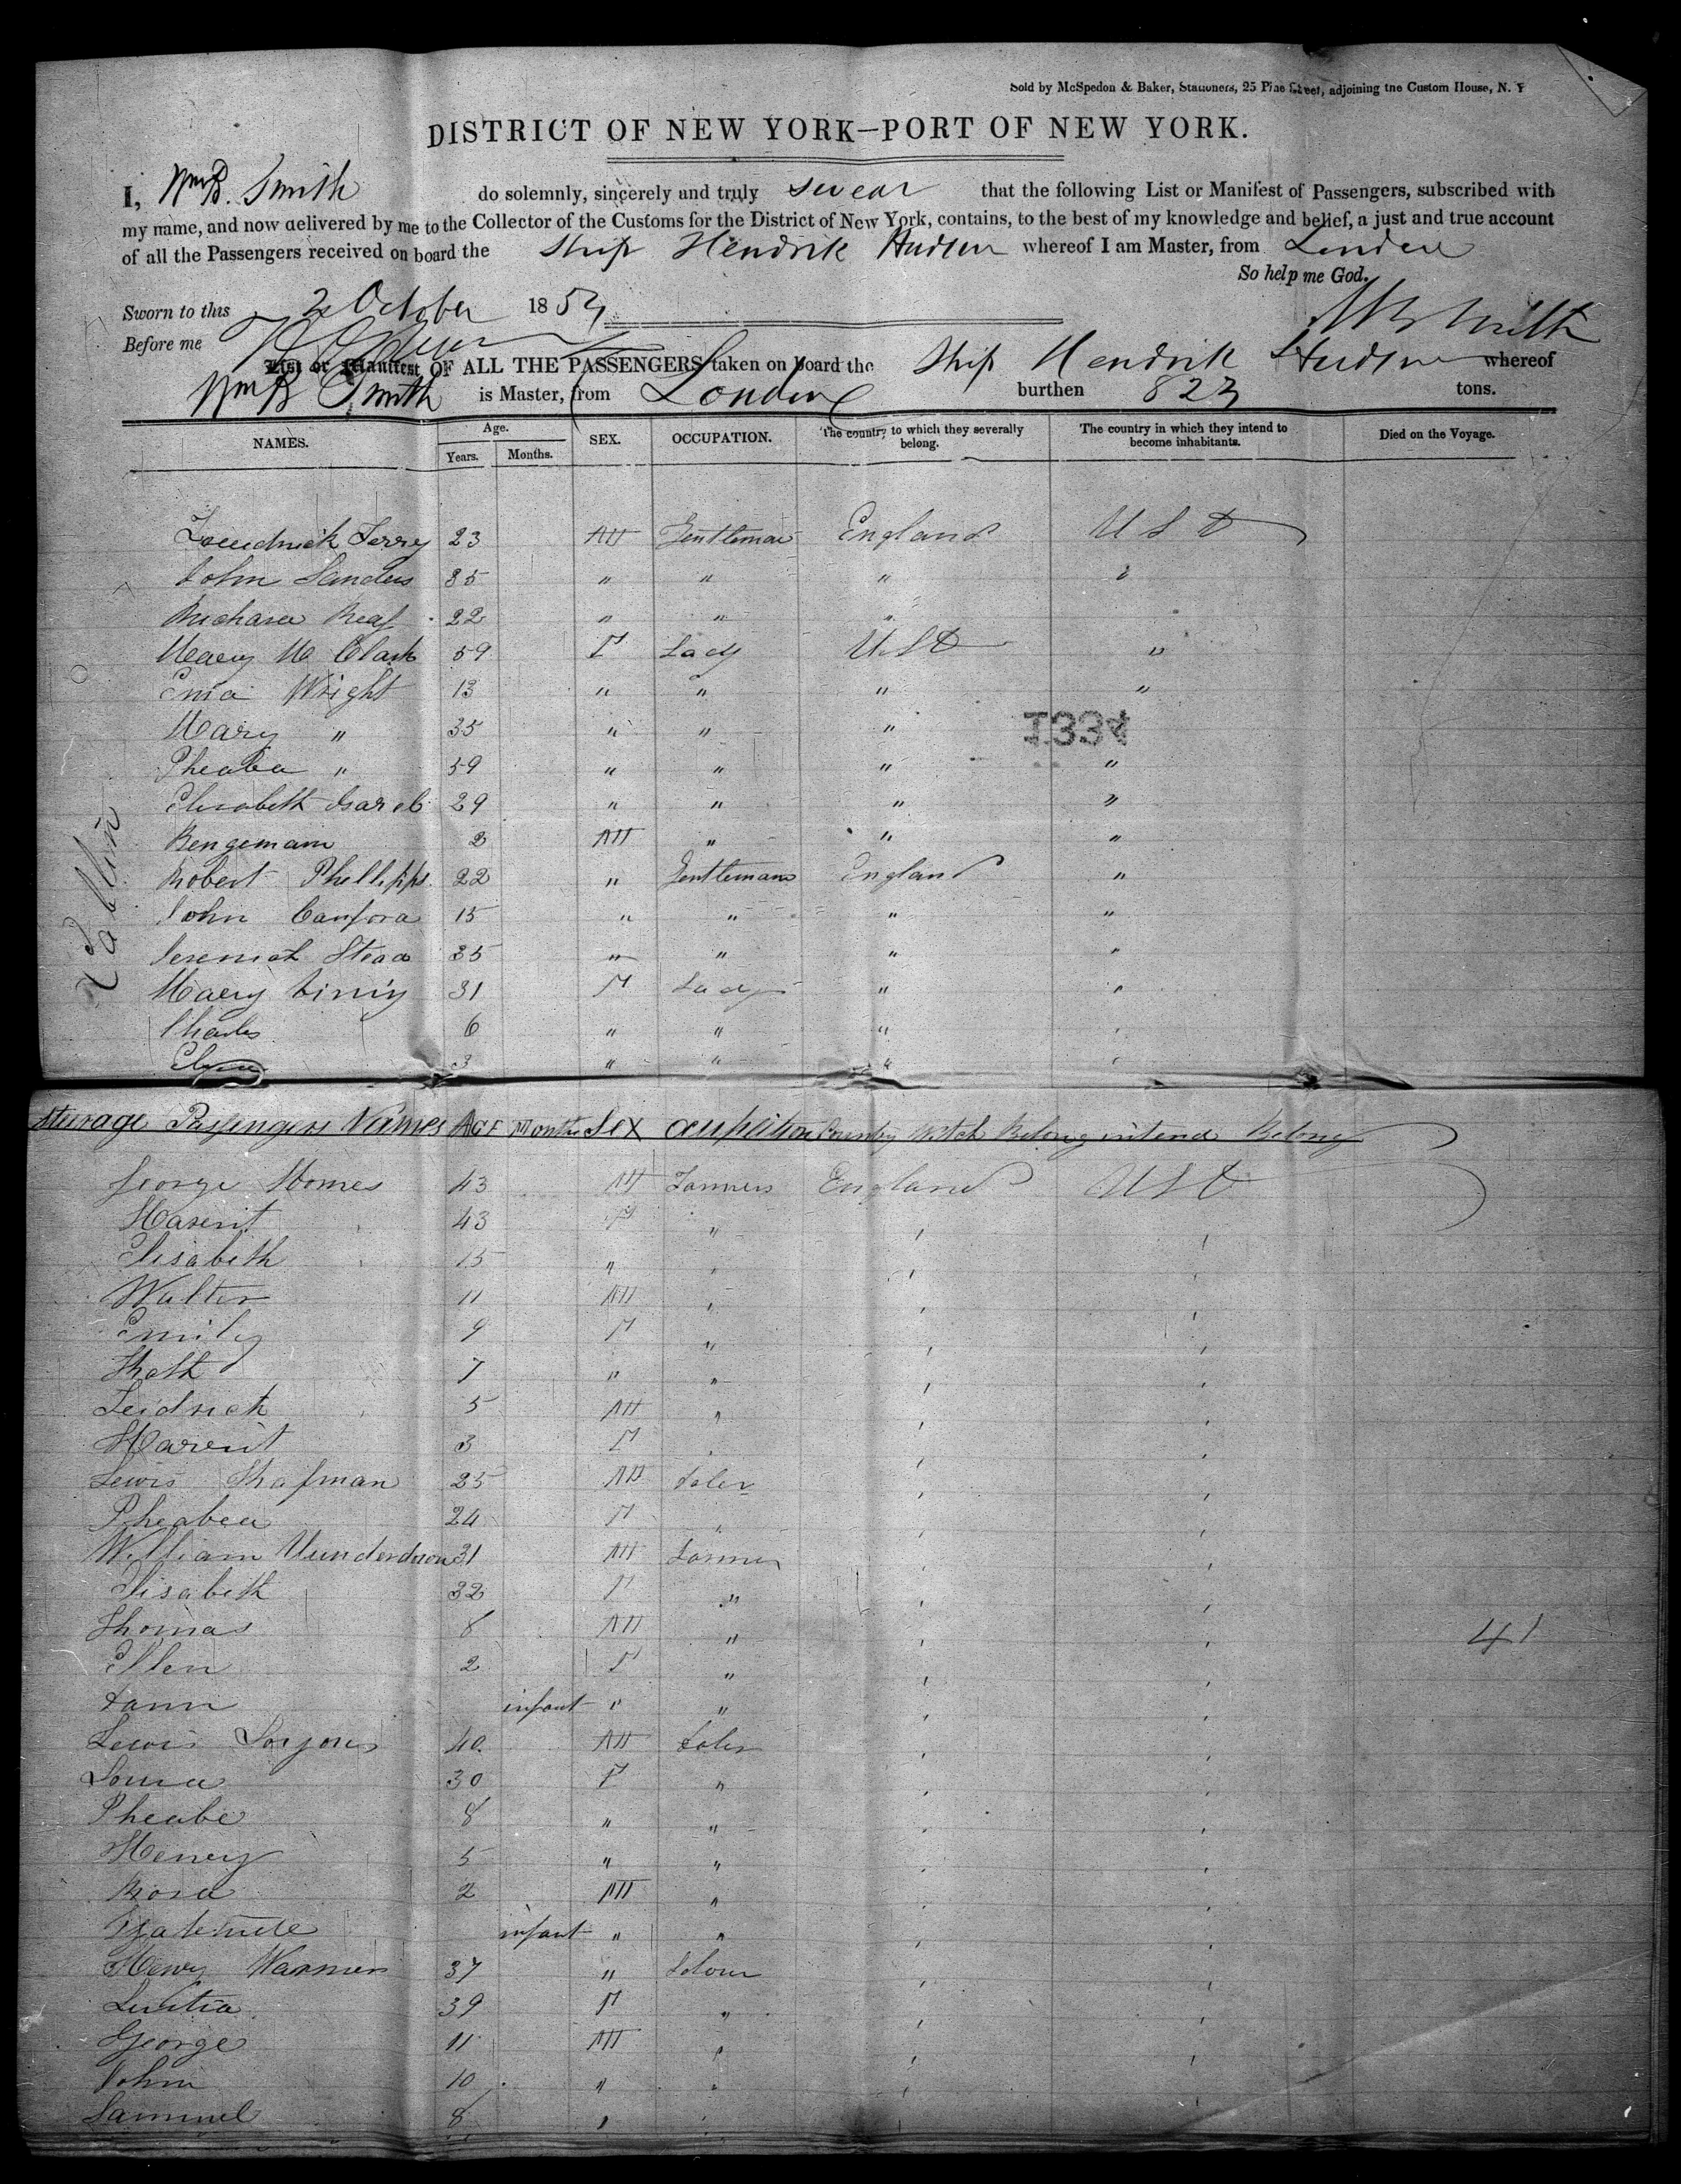 Sold by McSpedon & Baker, Stationers, 25 Pine Street, adjoining the Custom House, N. Y
DISTRICT OF NEW YORK—PORT OF NEW YORK.
I, Wm B. Smith do solemnly, sincerely and truly swear that the following List or Manifest of Passengers, subscribed with
my name, and now delivered by me to the Collector of the Customs for the District of New York, contains, to the best of my knowledge and belief, a just and true account
of all the Passengers received on board the Ship Hendrik Hudson whereof I am Master, from London
So help me God.
Sworn to this 2 October 1854
Wm B Smith
Before me
List or Manifest OF ALL THE PASSENGERS taken on board the Ship Hendrik Hudson whereof
Wm B Smith is Master, from London burthen 823 tons.
NAMES. Age. Years. Months. SEX. OCCUPATION. The country to which they severally belong. The country in which they intend to become inhabitants. Died on the Voyage.
Terry 23 M Gentleman England U S A
John Sanders 35 " " " "
22 " " "
Maery M Clark 59 F Lady U S A "
Ema Wright 13 " " " "
Mary " 35 " " "
1334
Pheaba " 59 " " " "
Elizabeth 29 " " " "
Bengemain 2 M " " "
Robert Phellipps 22 " Gentleman England "
John Canfora 15 " " " "
Jeremiah Stead 35 " " " "
Maery 31 F Lady " "
Charles 6 " " " "
3 " " " "
Cabbin
Sturage Passengers Names AGE Months Sex ocupation Country Witch Belong intend Belong
George Homes 43 M Farmers England U S A
Harerit 43 F " " "
Elisabeth 15 " " " "
Walter 11 M " " "
Emily 9 F " " "
7 " " " "
5 M " " "
Harerit 3 F " " "
Lewis Shapman 25 M " "
Pheabea 24 F " " "
William 31 M Farmer " "
Elisabeth 32 F " " "
Thomas 8 M " " " 41
Ellen 2 F " " "
infant " " " "
Lewis 40 M " "
30 F " " "
Pheabe 8 " " " "
Henery 5 " " " "
Rosa 2 M " " "
infant " " " "
Henry Warner 37 " " "
39 F " " "
George 11 M " " "
John 10 " " " "
Sammuel 8 " "